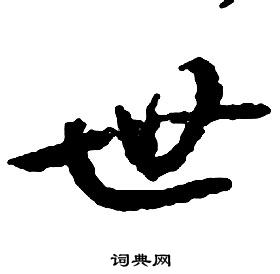 世
词典网